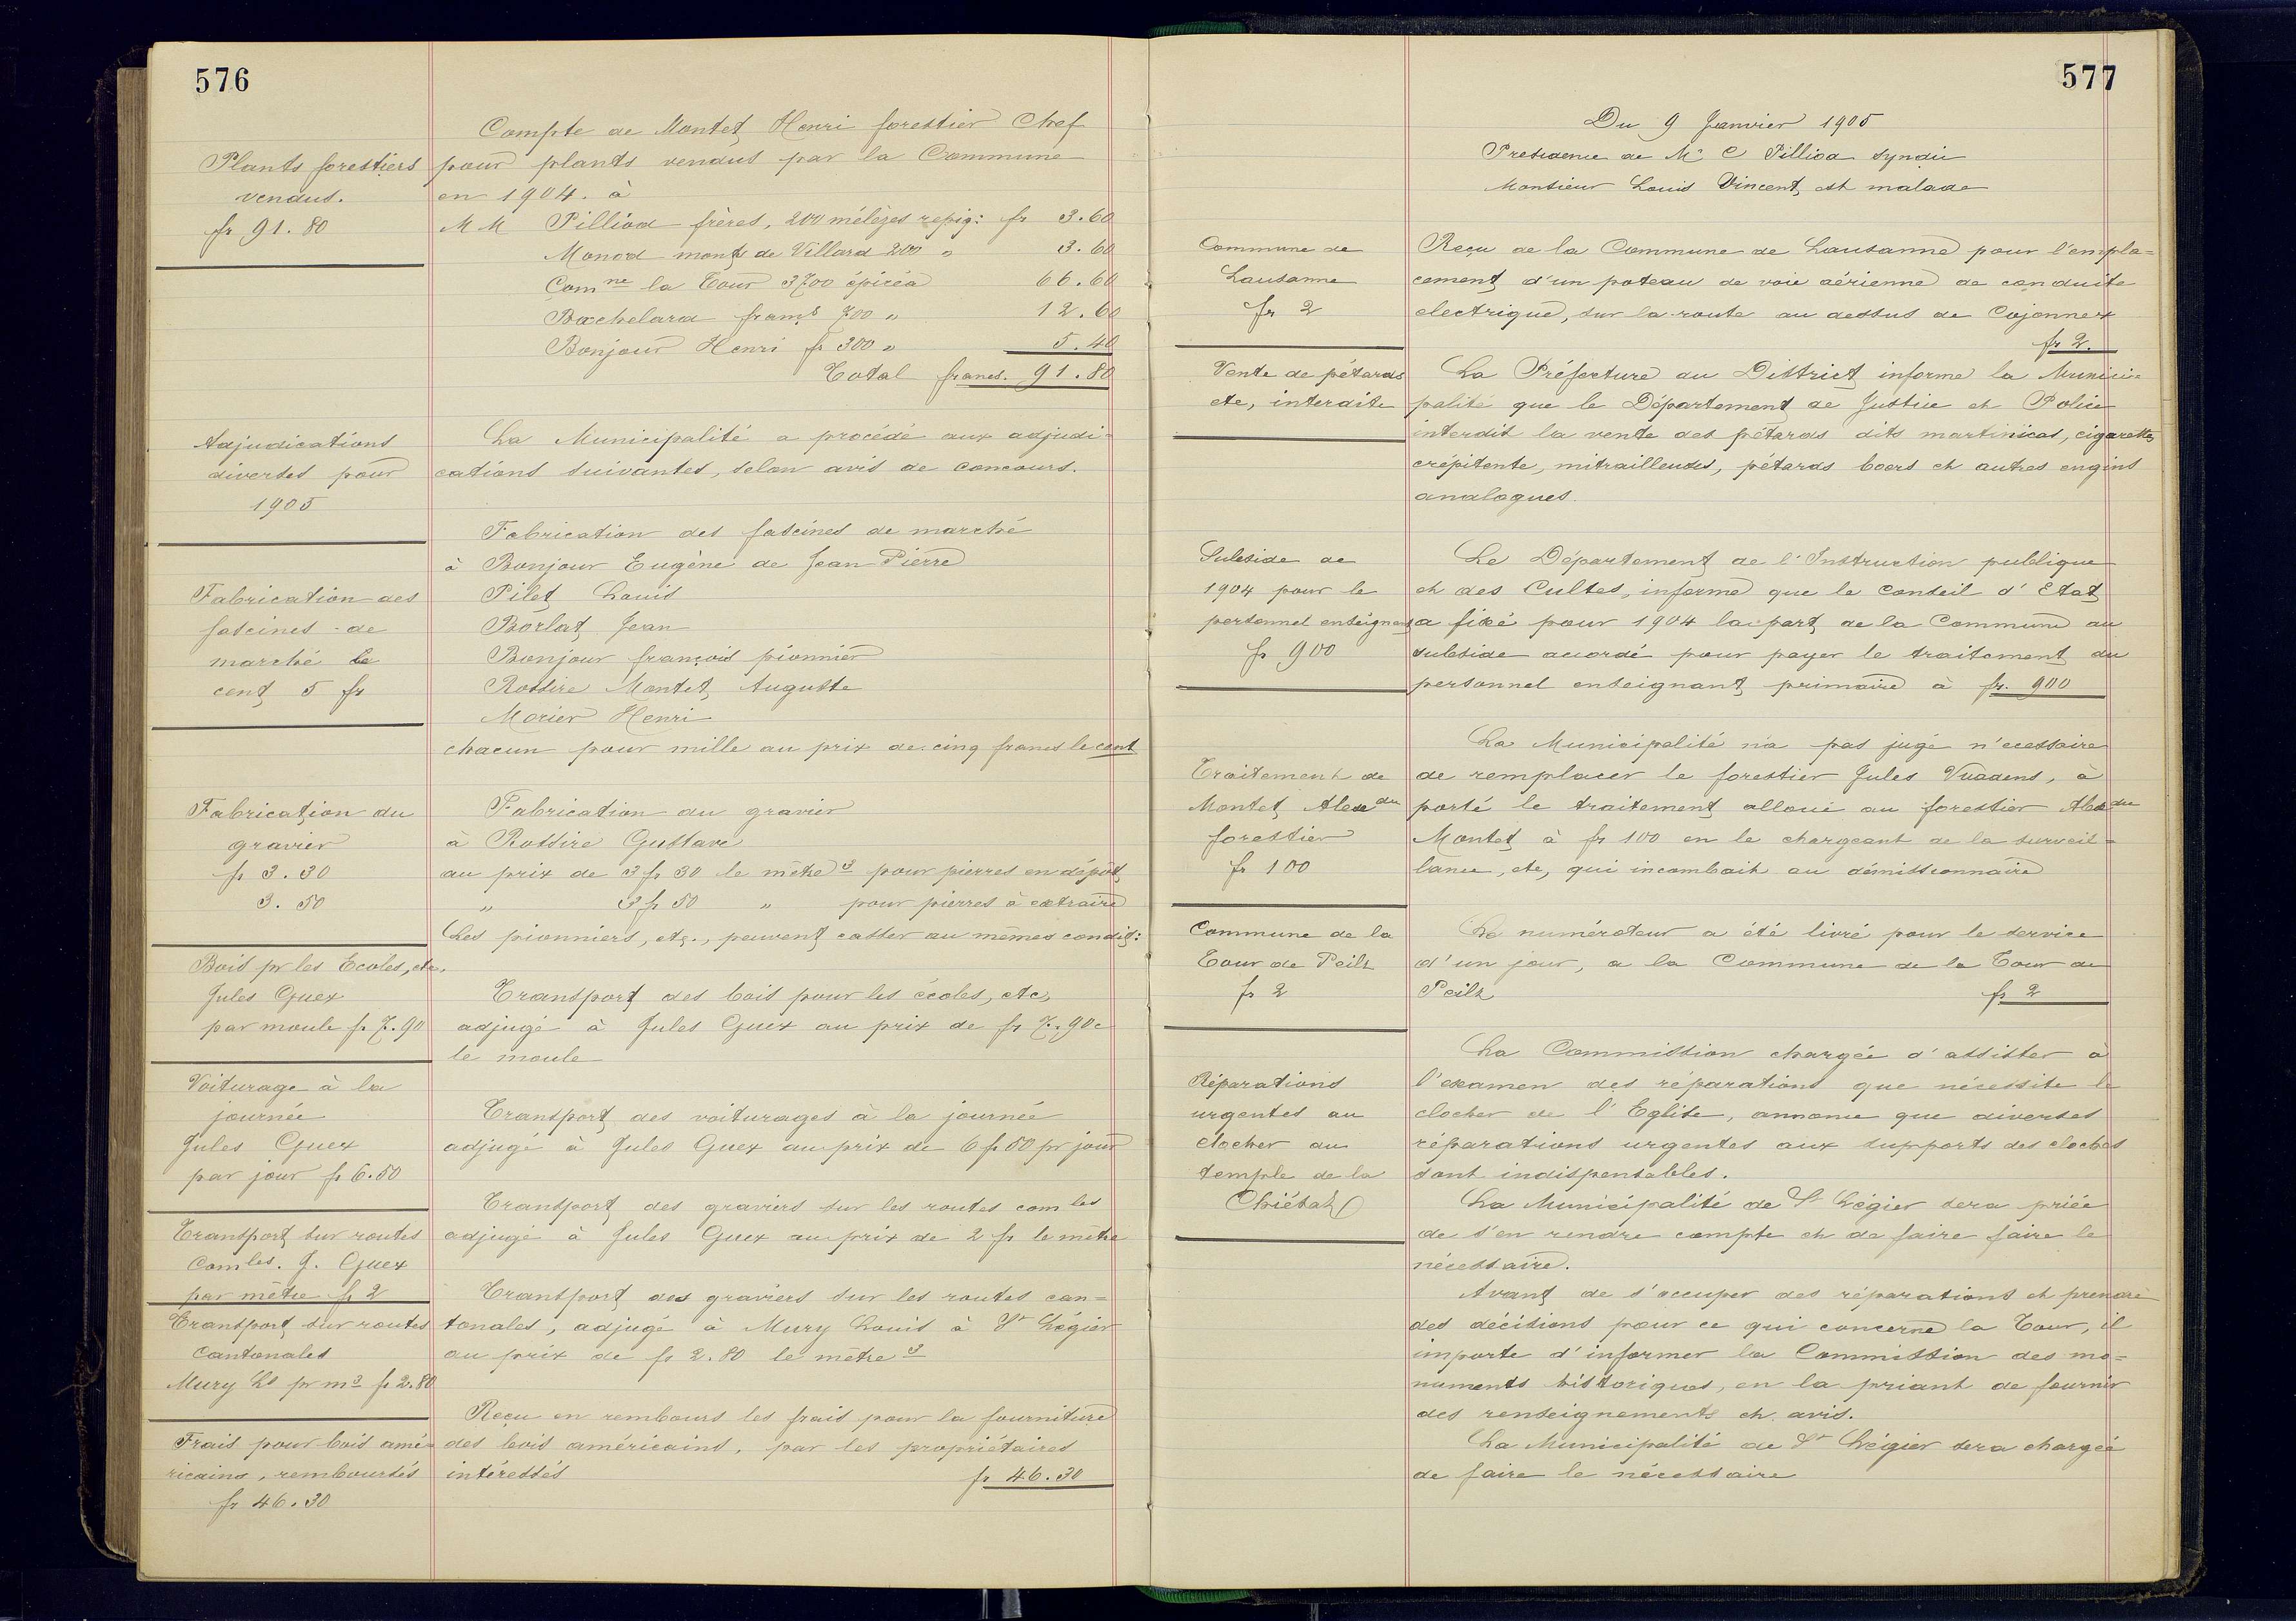 576
Compte de Montet Henri forestier Chef
Plants forestiers
vendus.
fr 91.80
pour plants vendus par la Commune
en 1904. à
MM Pilliod frères, 200 mélèzes repiq: fr 3.60
Monod mont de Villard 200 " 3.60
Comne la Tour 3700 épicéa 66.60
Bachelard frams 700 " 12.60
Bonjour Henri fr 300 " 5.40
Total francs. 91.80
Adjudications
diverses pour
1905
La Municipalité a procédé aux adjudi=
cations suivantes, selon avis de concours.
Fabrication des
fascines de
marché le
cent 5 fr
Fabrication des fascines de marché
à Bonjour Eugène de Jean Pierre
Pilet Louis
Borlat Jean
Bonjour françois pionnier
Rossire Montet Auguste
Morier Henri
chacun pour mille au prix de cinq francs le cent
Fabrication du
gravier
fr 3.30
3.50
Fabrication du gravier
à Rossire Gustave
au prix de 3 fr 30 le mètre 3 pour pierres en dépôt
" 3 fr 50 " pour pierres à extraire
Les pionniers, etc., peuvent casser au mêmes condit:
Bois pr les Ecoles, etc.
Jules Guex
par moule fr 7.90
Transport des bois pour les écoles, etc,
adjugé à Jules Guex au prix de fr 7.90c
le moule
Voiturage à la
journée
Jules Guex
par jour fr 6.50
Transport des voiturages à la journée
adjugé à Jules Guex au prix de 6 fr 50 pr jour
Transport sur routes
Comles. J. Guex
par mètre fr 2
Transport des graviers sur les routes comles
adjugé à Jules Guex au prix de 2 fr le mètre
Transport sur routes
Cantonales
Mury Ls pr m3 fr 2.80
Transport des graviers sur les routes can=
tonales, adjugé à Mury Louis à St Légier
au prix de fr 2.80 le mètre 3
Frais pour bois amé=
ricains, remboursés
fr 46.30
Reçu en rembours les frais pour la fourniture
des bois américains, par les propriétaires
intéressés fr 46.30
577
Du 9 Janvier 1905
Présidence de Mr C Pilliod syndic
Monsieur Louis Vincent, est malade
Commune de
Lausanne
fr 2
Reçu de la Commune de Lausanne pour l'empla=
cement d'un poteau de voie aérienne de conduite
electrique, sur la route au dessus de Cojonnex
fr 2.
Vente de pétards
etc, interdite
La Préfecture du District informe la Munici=
palité que le Département de Justice et Police
interdit la vente des pétards dits martinicas, cigarettes
crépitente, mitrailleuses, pétards boers et autres engins
analogues.
Subside de
1904 pour le
personnel enseignant
fr 900
Le Département de l'Instruction publique
et des Cultes, informe que le Conseil d'Etat
a fixé pour 1904 la part de la Commune au
subside accordé pour payer le traitement du
personnel enseignant primaire à fr. 900
Traitement de
Montet Alexdre
forestier
fr 100
La Municipalité n'a pas jugé n'ecessaire
de remplacer le forestier Jules Vuadens, à
porté le traitement alloué au forestier Alexdre
Montet à fr 100 en le chargeant de la surveil=
lance, etc, qui incombait au démissionnaire
Commune de la
Tour de Peilz
fr 2
Le numéroteur a été livré pour le service
d'un jour, a la Commune de la Tour de
Peilz fr 2
Réparations
urgentes au
clocher du
temple de la
Chiésaz
La Commission chargée d'assister à
l'examen des réparations que nécessite le
clocher de l'Eglise, annonce que diverses
réparations urgentes aux supports des cloches
sont indispensables.
La Municipalité de St Légier sera priée
de s'en rendre compte et de faire faire le
nécessaire.
Avant de s'occuper des réparations et prendre
des décisions pour ce qui concerne la Tour, il
importe d'informer la Commission des mo=
numents historiques, en la priant de fournir
des renseignements et avis.
La Municipalité de St Légier sera chargée
de faire le nécessaire